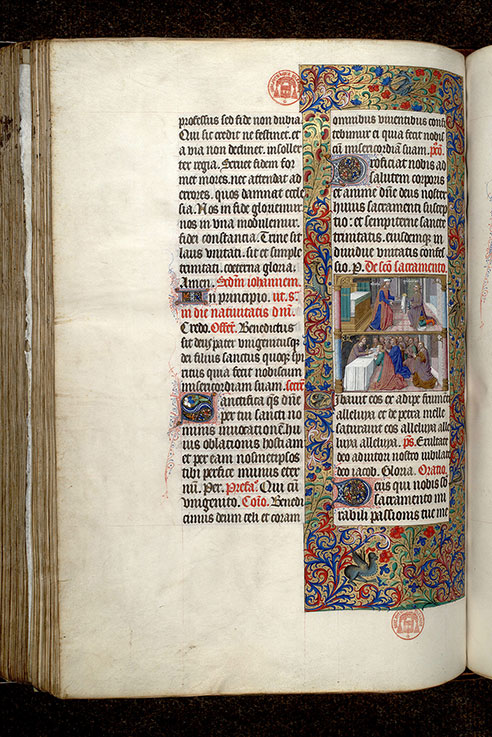 professus sed fide non dubia
Qui sic credit ne festinet. et
a via non declinet. insoller
ter regia. Servet fidem for
met mores. nec attendat ad
errores. quos damnat eccle
sia. Nos in fide gloriemur
nos in una modulemur.
fidei constantia. Trine sit
laus unitati. sit et simple
trinitati. coeterna gloria.
Amen. Scdm iohannem.
In principio. ut. s.
in die nativitatis dni.
Credo. Offert. Benedictus
sit deus pater unigenitusqz
dei filius sanctus quoqz spi
ritus quia fecit nobiscum
misericordiam suam. secret
Sanctifica qs dne
per tui sancti no
minis invocationem hu
ius oblationis hostiam
et per eam nosmetipsos
tibi perfice munus eter
nu. Per. Prefa. Qui cu
unigenito. Coio. Benedi
cimus deum celi et coram
omnibus viventibus confi
tebimur ei quia fecit nobis
cu misericordia suam. pco.
Proficiat nobis ad
salutem corporis
et anime dne deus noster
huius sacramenti suscep
tio: et sempiterne sancte
trinitatis. eiusdemqz in
dividue unitatis confes
sio. P. De sco sacramento.
Cibavit eos ex adipe frumen
alleluya et de petra melle
saturavit eos alleluya alle
luya alleluya. ps. Exultate
deo adiutori nostro iubilate
deo iacob. Gloria. Oratio.
Deus qui nobis sb
sacramento mi
rabili passionis tue me